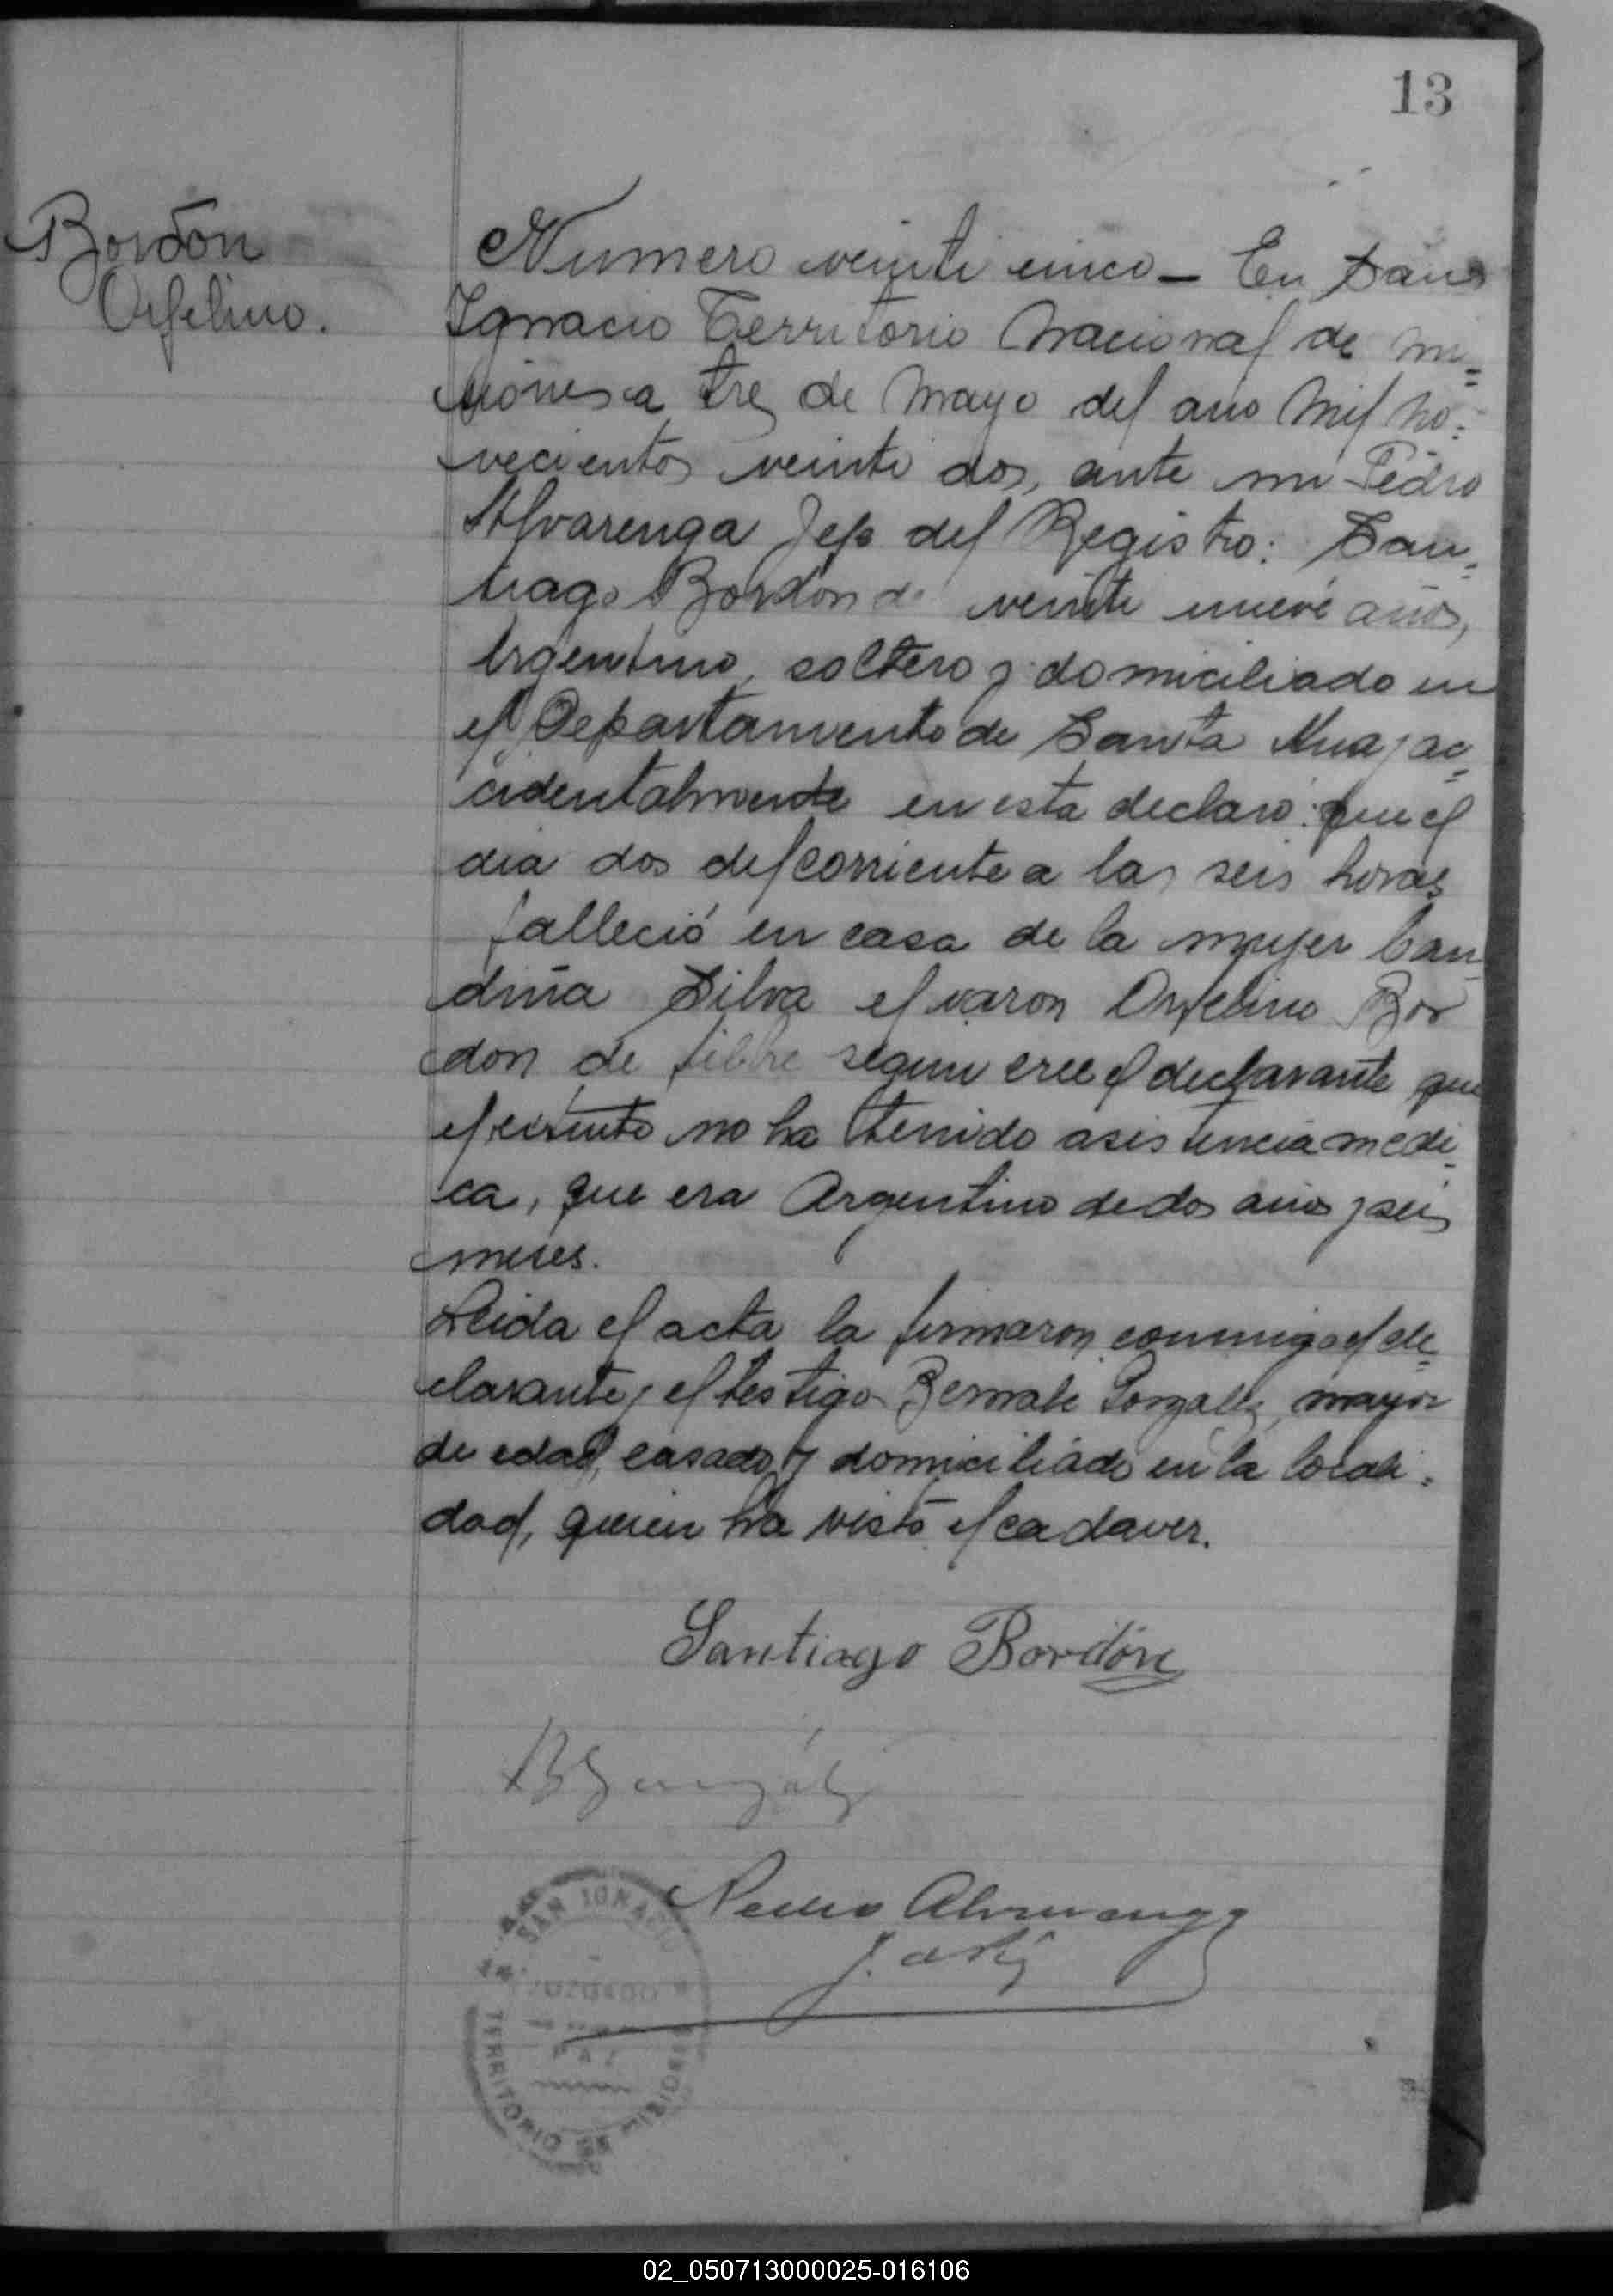 13
Bordón
Orfelino.
Numero veinti cinco – En San
Ignacio Territorio Nacional de Mi=
siones a tres de Mayo del año Mil no=
vecientos veinti dos, ante mi Pedro
Alvarenga Jefe del Registro: San=
tiago Bordón de veinti nueve años,
Argentino, soltero y domiciliado en
el Departamento de Santa Ana y ac=
cidentalmente en esta declaró: que el
dia dos del corriente a las seis horas
falleció en casa de la mujer Can
dina Silva el varon Orfelino Bor
don de fiebre segun cree el declarante que
el extinto no ha tenido asistencia medi=
ca, que era Argentino de dos años y seis
meses.
Leida el acta la firmaron conmigo el de=
clarante y el testigo Bernabe Gonzalez, mayor
de edad, casado y domiciliado en la locali=
dad, quien ha visto el cadaver.
Santiago Bordón
B Gonzálz
Pedro Alvarenga
SAN IGNACIO
TERRITORIO DE MISIONES
02_050713000025-016106